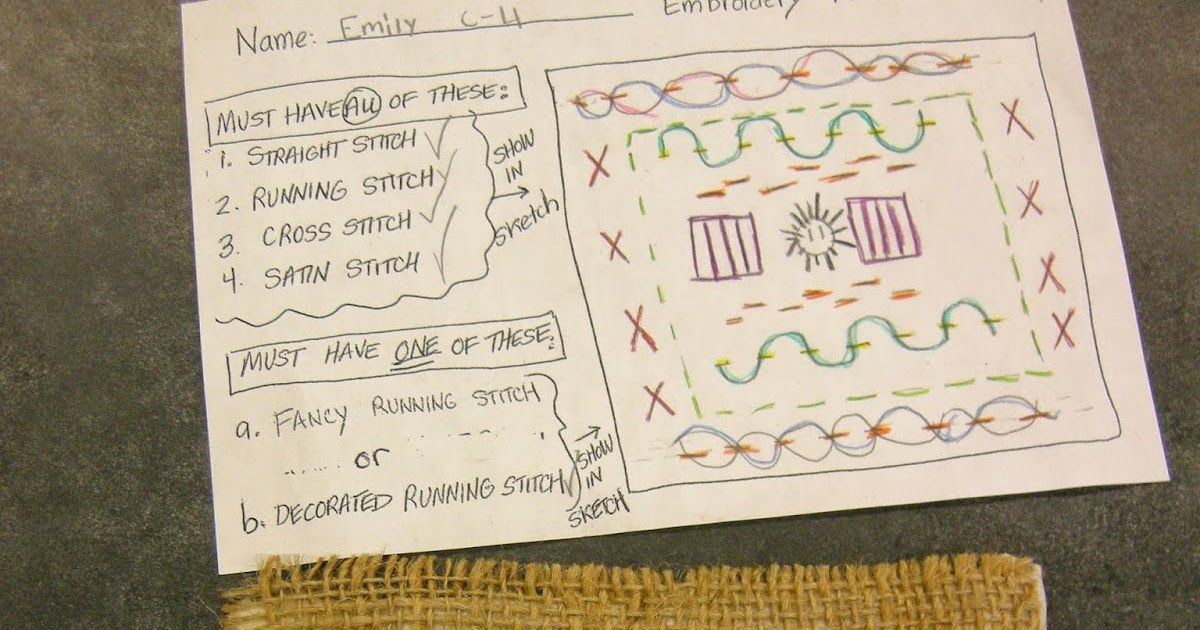 Name: Emily C-4
Embroidery
MUST HAVE ALL OF THESE:
1. STRAIGHT STITCH
2. RUNNING STITCH
3. CROSS STITCH
4. SATIN STITCH
SHOW
IN
SKETCH
MUST HAVE ONE OF THESE:
a. FANCY RUNNING STITCH
or
b. DECORATED RUNNING STITCH
SHOW
IN
SKETCH